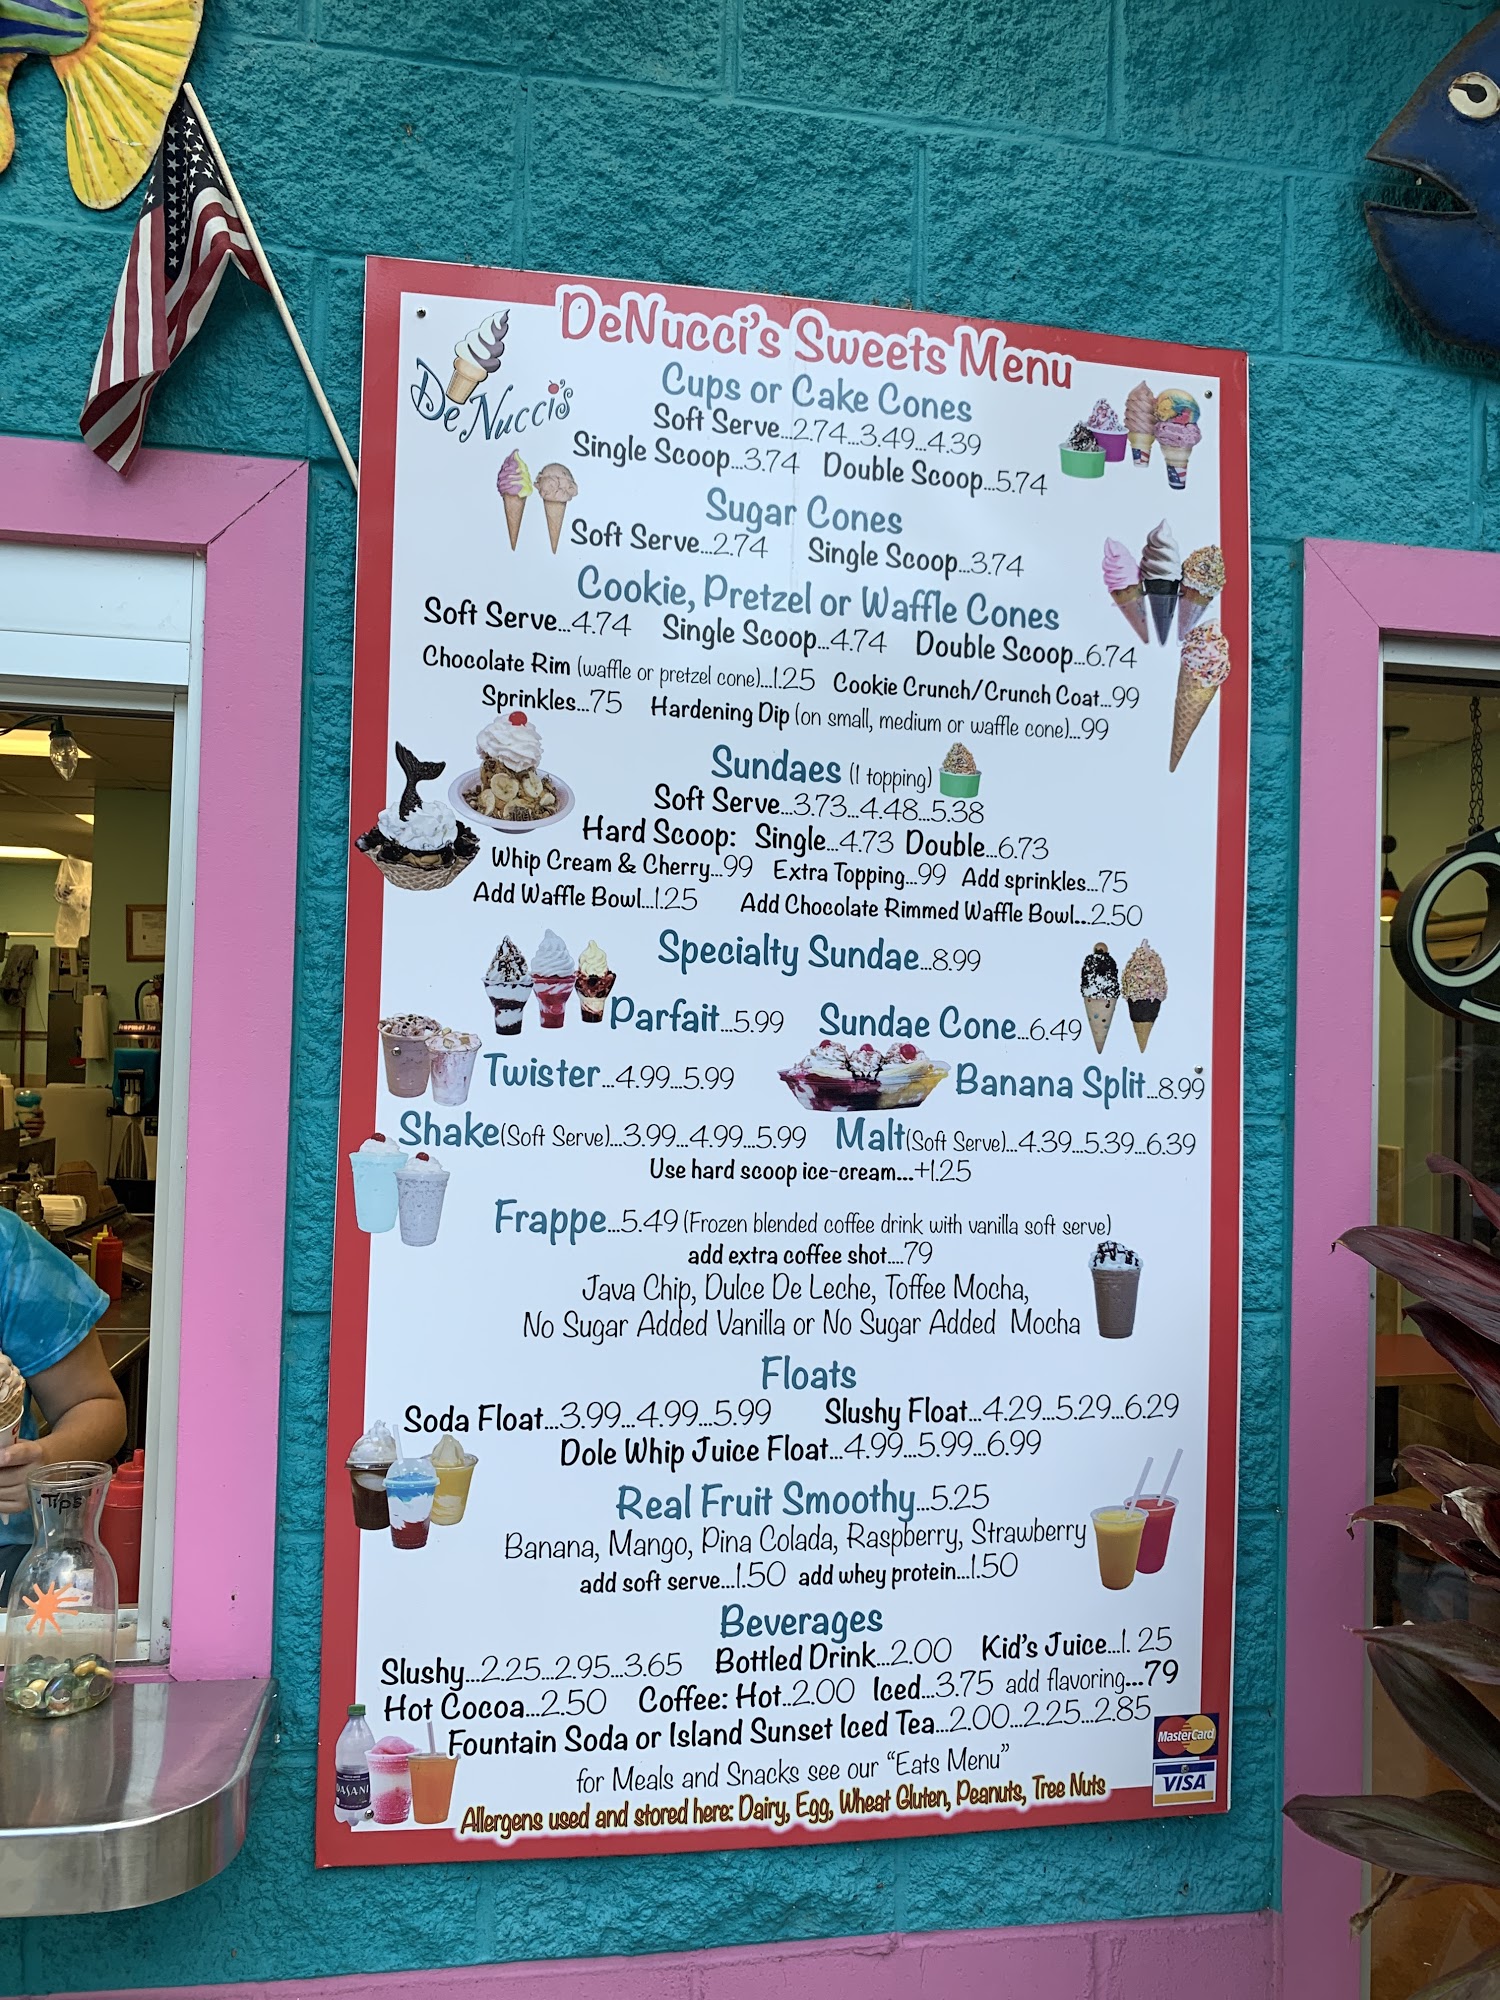 DeNucci's Sweets Menu
DeNucci's
Cups or Cake Cones
Soft Serve...2.74...3.49...4.39
Single Scoop...3.74 Double Scoop...5.74
Sugar Cones
Soft Serve...2.74 Single Scoop...3.74
Cookie, Pretzel or Waffle Cones
Soft Serve...4.74 Single Scoop...4.74 Double Scoop...6.74
Chocolate Rim (waffle or pretzel cone)...1.25 Cookie Crunch/Crunch Coat...99
Sprinkles...75 Hardening Dip (on small, medium or waffle cone)...99
Sundaes (1 topping)
Soft Serve...3.73...4.48...5.38
Hard Scoop: Single...4.73 Double...6.73
Whip Cream & Cherry...99 Extra Topping...99 Add sprinkles...75
Add Waffle Bowl...1.25 Add Chocolate Rimmed Waffle Bowl...2.50
Specialty Sundae...8.99
Parfait...5.99 Sundae Cone...6.49
Twister...4.99...5.99 Banana Split...8.99
Shake(Soft Serve)...3.99...4.99...5.99 Malt(Soft Serve)...4.39...5.39...6.39
Use hard scoop ice-cream...+1.25
Frappe...5.49 (Frozen blended coffee drink with vanilla soft serve)
add extra coffee shot....79
Java Chip, Dulce De Leche, Toffee Mocha,
No Sugar Added Vanilla or No Sugar Added Mocha
Floats
Soda Float...3.99...4.99...5.99 Slushy Float...4.29...5.29...6.29
Dole Whip Juice Float...4.99...5.99...6.99
Real Fruit Smoothy...5.25
Banana, Mango, Pina Colada, Raspberry, Strawberry
add soft serve...1.50 add whey protein...1.50
Beverages
Slushy...2.25...2.95...3.65 Bottled Drink...2.00 Kid's Juice...1. 25
Hot Cocoa...2.50 Coffee: Hot..2.00 Iced...3.75 add flavoring...79
Fountain Soda or Island Sunset Iced Tea...2.00...2.25...2.85
for Meals and Snacks see our “Eats Menu”
Allergens used and stored here: Dairy, Egg, Wheat Gluten, Peanuts, Tree Nuts
MasterCard
VISA
DASANI
Tips